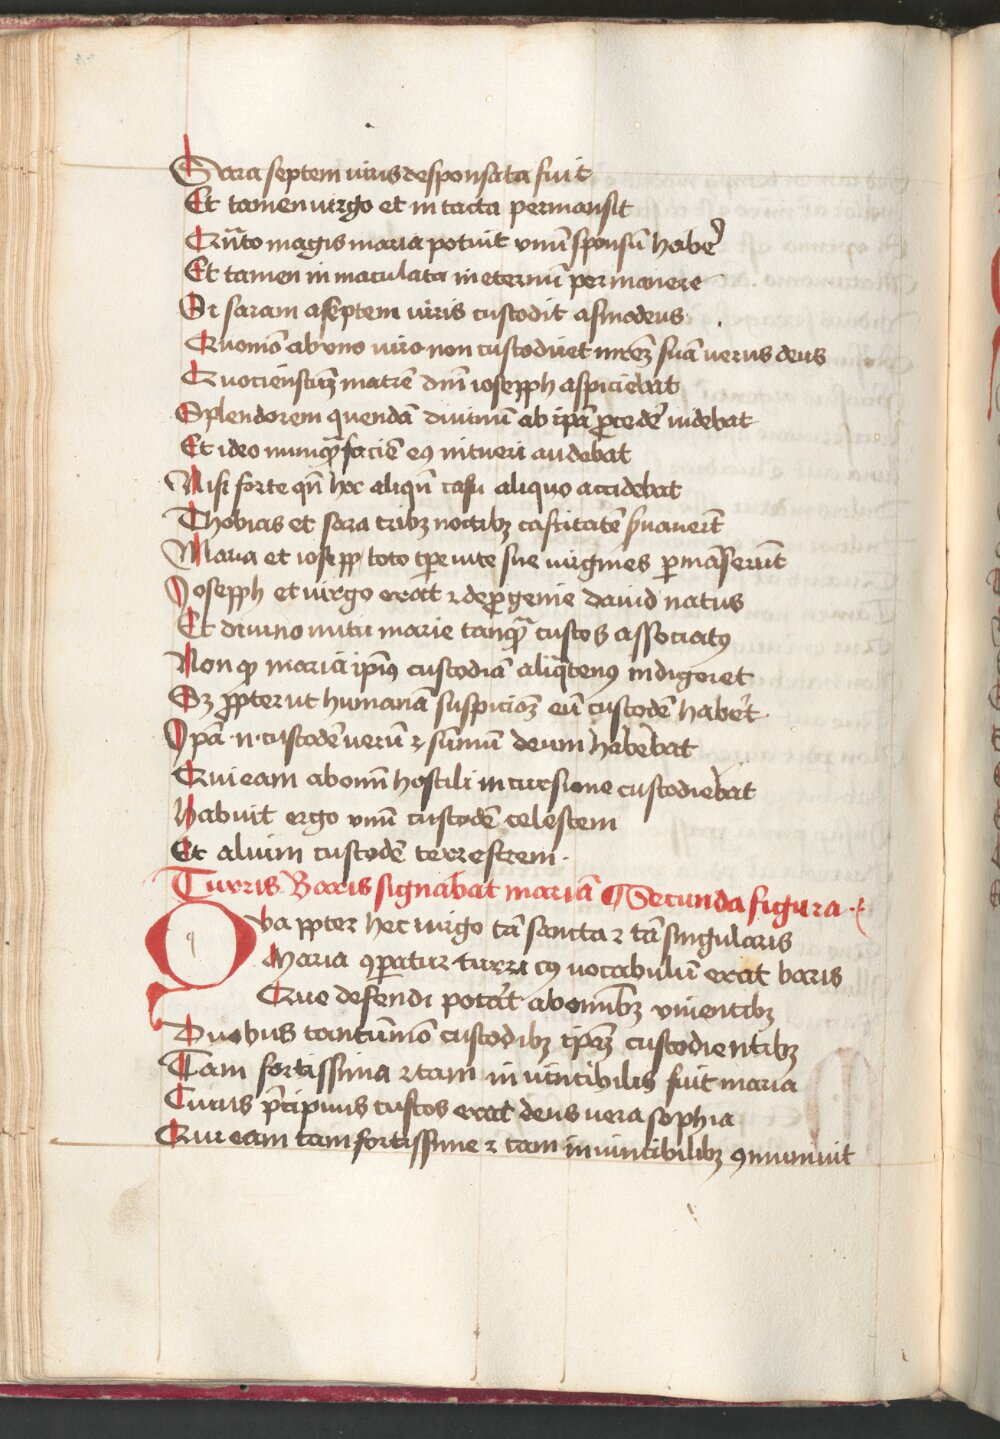 Sara septem uiris desponsata fuit
Et tamen uirgo et in tacta permansit
Qn̄to magis maria potuit vnū sponsū haber̄
Et tamen in maculata in eternū permanere
Si saram a septem uiris custodit asmodeus
Quomō ab vno uiro non custodiret mrēꝫ suā uerus deus
Quociensꝯqꝫ matrē dnī ioseph aspiciebat
Splendorem quendā diuinū ab ipā ꝓceder̄ uidebat
Et ideo nunqͣ faciē eꝯ intueri audebat
Nisi forte qn̄ hoc aliqn̄ casu aliquo accidebat
Thobias et sara tribꝫ noctibꝫ castitatē ẜuauerūt
Maria et ioseph toto tꝑe uite sue uirgines ꝑmāserūt
Ioseph et uirgo erat ⁊ de ꝓgenie dauid natus
Et diuino nutu marie tanqͣ custos associatꝯ
Non ꝙ maria ipīus custodiā aliqͣtenꝯ indigeret
Sꝫ ꝓpter ut humanā suspicioꝫ eū custodē haber̄t
Ipā .n. custodē uerū ⁊ sūmū deum habebat
Qui eam ab omī hostili in cursione custodiebat
Habuit ergo vnū custodē celestem
Et alium custodē terrestrem .
Turris Baris signabat mariā ¶ Secunda figura
Qua ꝓpter hec uirgo tā sancta ⁊ tā singularis
Maria ꝯꝑatur turri cꝯ uocabulū erat baris
Que defendi potār̄t ab omībꝫ viuentibꝫ
Duobus tantūmō custodibꝫ ipāꝫ custodientibꝫ
Tam fortissima ⁊ tam in uincibilis fuit maria
Cuius p̄cipuus custos erat deus uera sophia
Qui eam tam fortissime ⁊ tam inuincibilibꝫ ꝯmuniuit